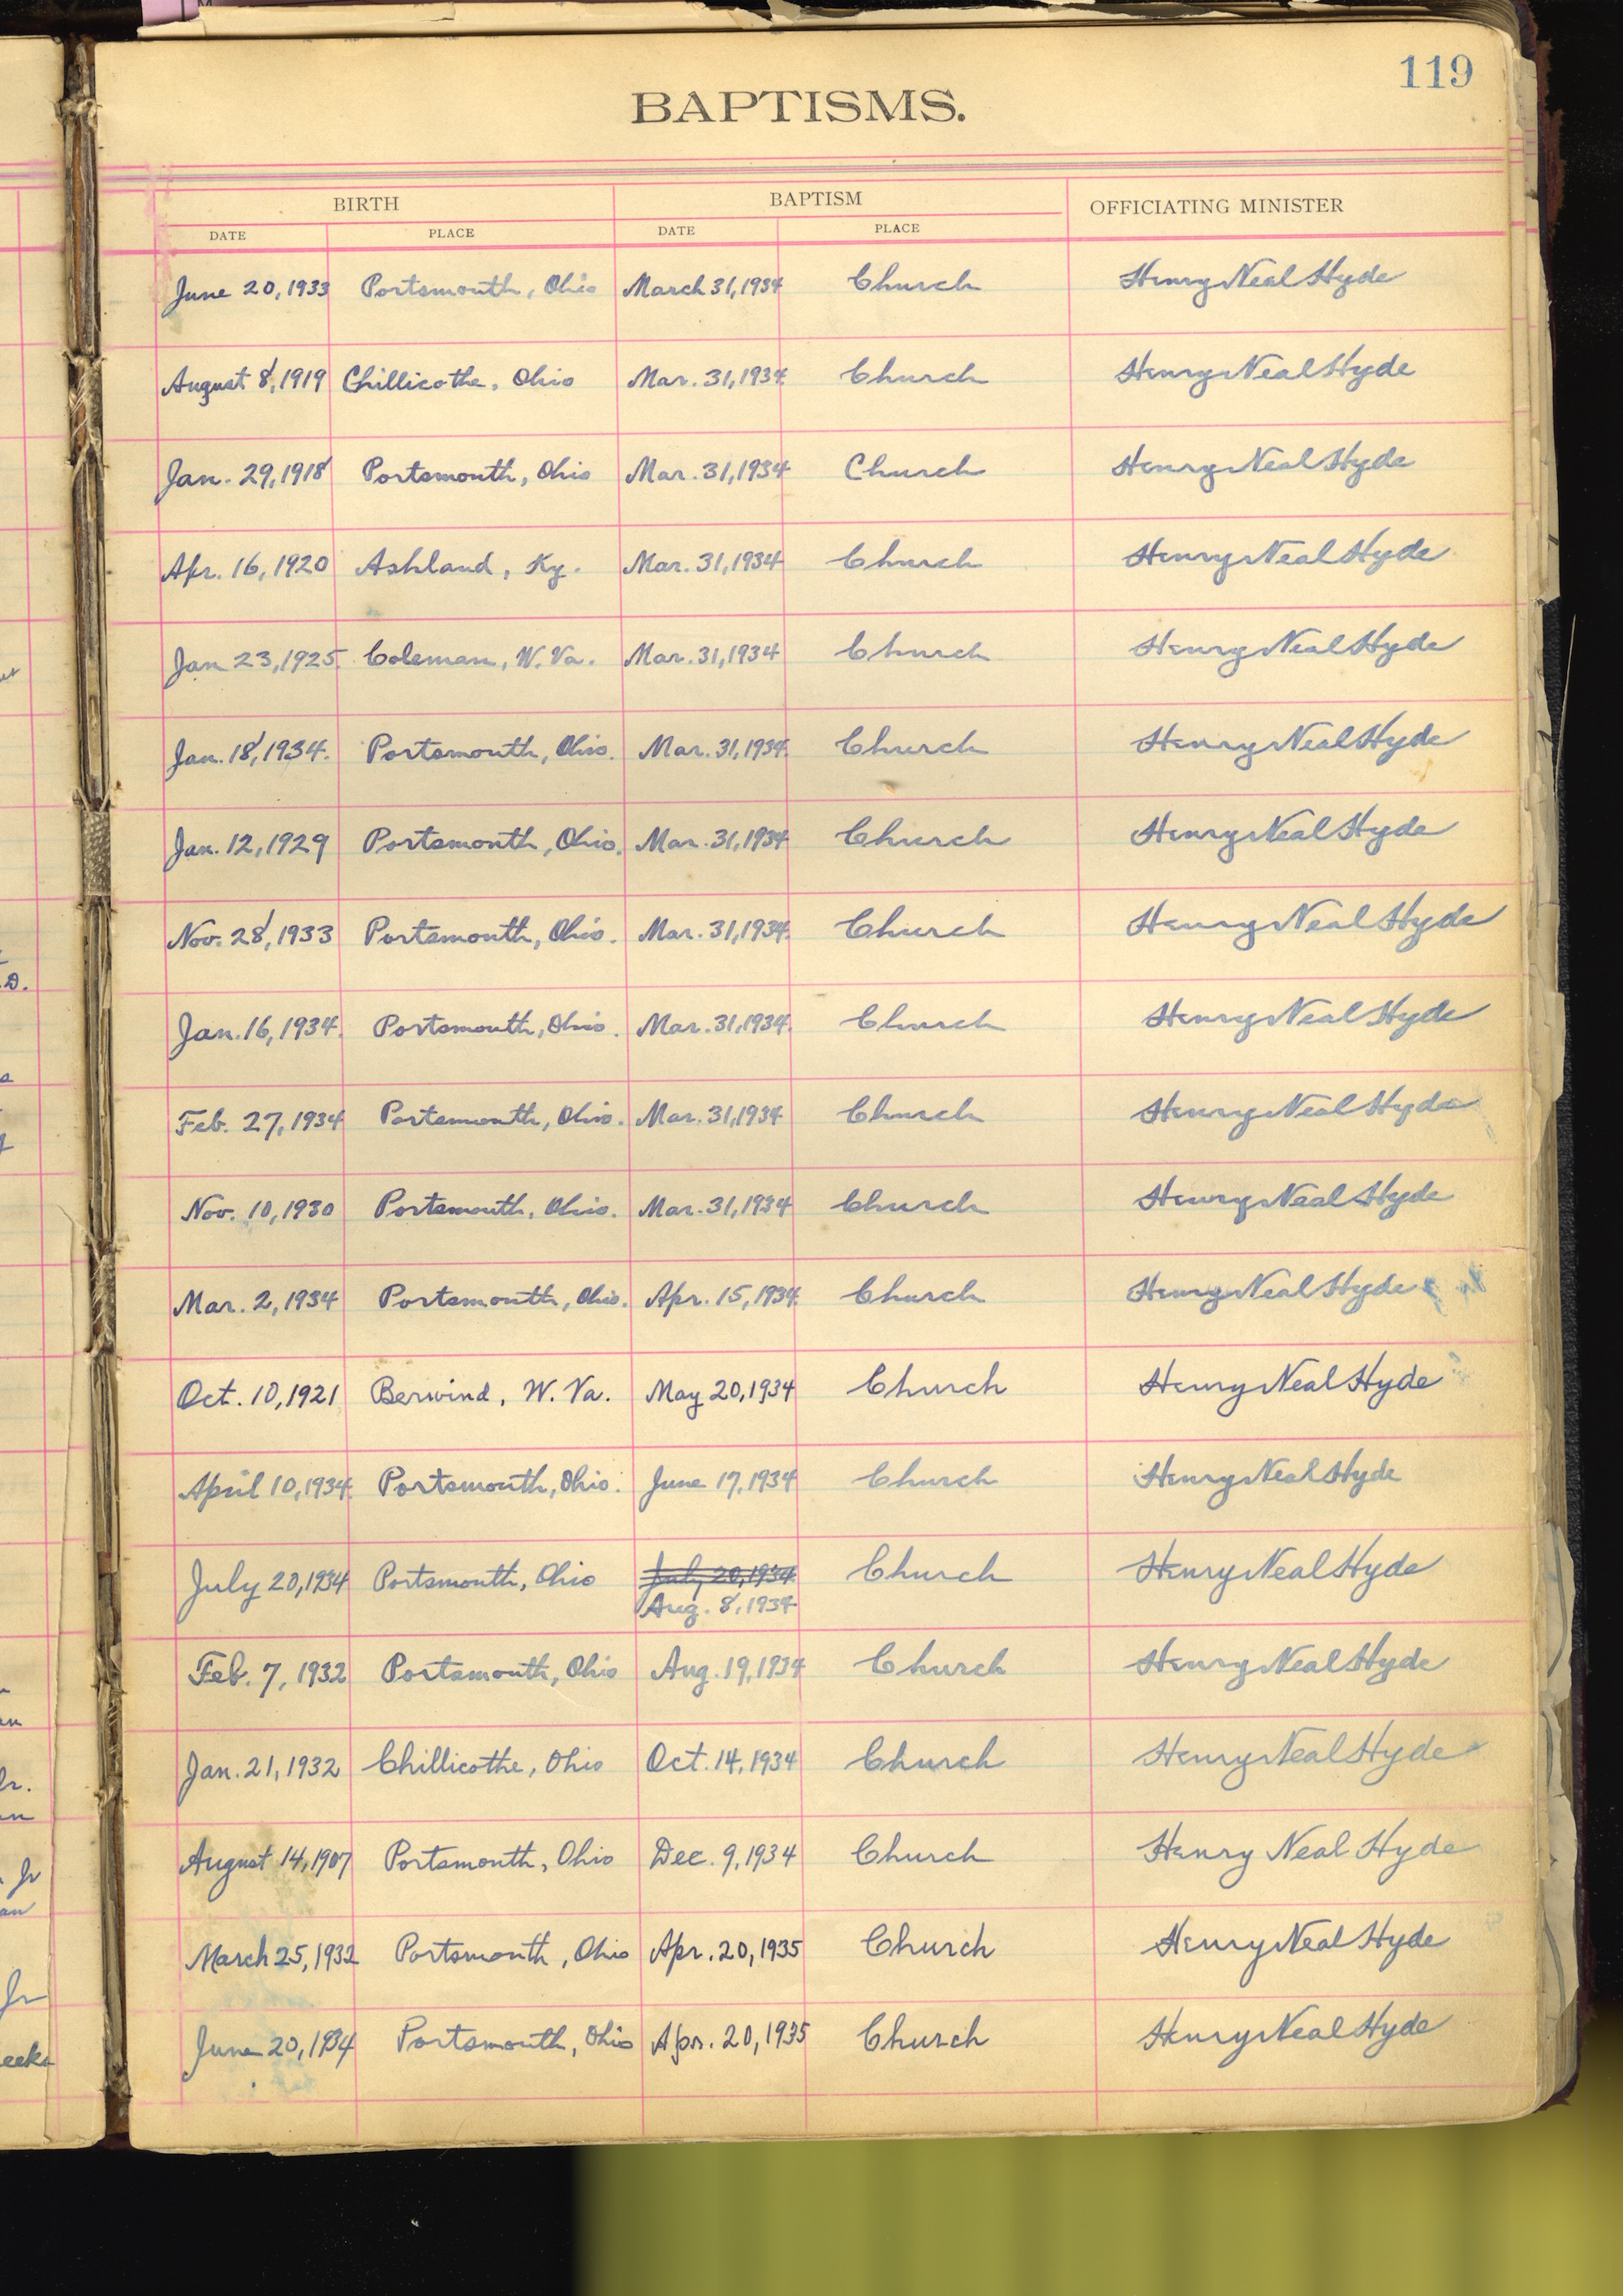 119
BAPTISMS.
BIRTH BAPTISM OFFICIATING MINISTER
DATE PLACE DATE PLACE
June 20, 1933 Portsmouth, Ohio March 31, 1934 Church Henry Neal Hyde
August 8, 1919 Chillicothe, Ohio Mar. 31, 1934 Church Henry Neal Hyde
Jan. 29, 1918 Portsmouth, Ohio Mar. 31, 1934 Church Henry Neal Hyde
Apr. 16, 1920 Ashland, Ky. Mar. 31, 1934 Church Henry Neal Hyde
Jan 23, 1925 Coleman, W. Va. Mar. 31, 1934 Church Henry Neal Hyde
Jan. 18, 1934. Portsmouth, Ohio. Mar. 31, 1934. Church Henry Neal Hyde
Jan. 12, 1929 Portsmouth, Ohio. Mar. 31, 1934 Church Henry Neal Hyde
Nov. 28, 1933 Portsmouth, Ohio. Mar. 31, 1934. Church Henry Neal Hyde
Jan. 16, 1934. Portsmouth, Ohio. Mar. 31, 1934. Church Henry Neal Hyde
Feb. 27, 1934 Portsmouth, Ohio. Mar. 31, 1934 Church Henry Neal Hyde
Nov. 10, 1930 Portsmouth, Ohio. Mar. 31, 1934 Church Henry Neal Hyde
Mar. 2, 1934 Portsmouth, Ohio. Apr. 15, 1934. Church Henry Neal Hyde
Oct. 10, 1921 Berwind, W. Va. May 20, 1934 Church Henry Neal Hyde
April 10, 1934. Portsmouth, Ohio. June 17, 1934 Church Henry Neal Hyde
July 20, 1934 Portsmouth, Ohio July 20, 1934 Church Henry Neal Hyde
Aug. 8, 1934
Feb. 7, 1932 Portsmouth, Ohio Aug. 19, 1934 Church Henry Neal Hyde
Jan. 21, 1932 Chillicothe, Ohio Oct. 14, 1934 Church Henry Neal Hyde
August 14, 1907 Portsmouth, Ohio Dec. 9, 1934 Church Henry Neal Hyde
March 25, 1932 Portsmouth, Ohio Apr. 20, 1935 Church Henry Neal Hyde
June 20, 1934 Portsmouth, Ohio Apr. 20, 1935 Church Henry Neal Hyde